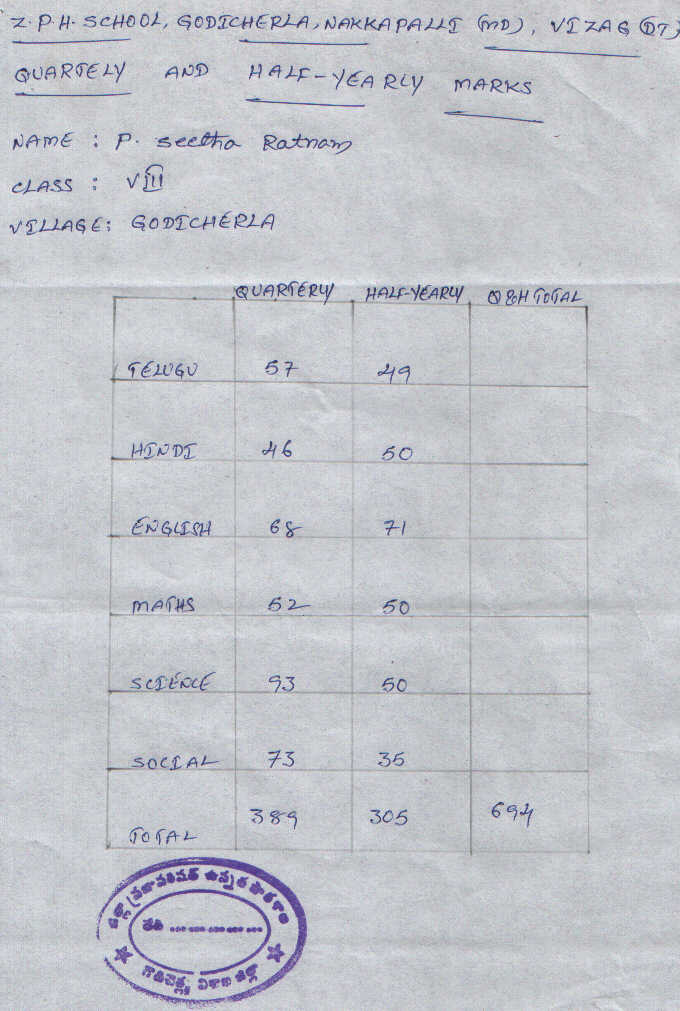 Z.P.H. SCHOOL, GODICHERLA, NAKKAPALLI (MD), VIZAG (DT)
QUARTELY AND HALF-YEARLY MARKS
NAME : P. Seetha Ratnam
CLASS : VIII
VILLAGE: GODICHERLA
QUARTERLY HALF-YEARLY Q&H TOTAL
TELUGU 57 49
HINDI 46 50
ENGLISH 68 71
MATHS 52 50
SCIENCE 93 50
SOCIAL 73 35
TOTAL 389 305 694
జిల్లా ప్రజాపరిషత్ ఉన్నత పాఠశాల
తేది
విశాఖ జిల్లా